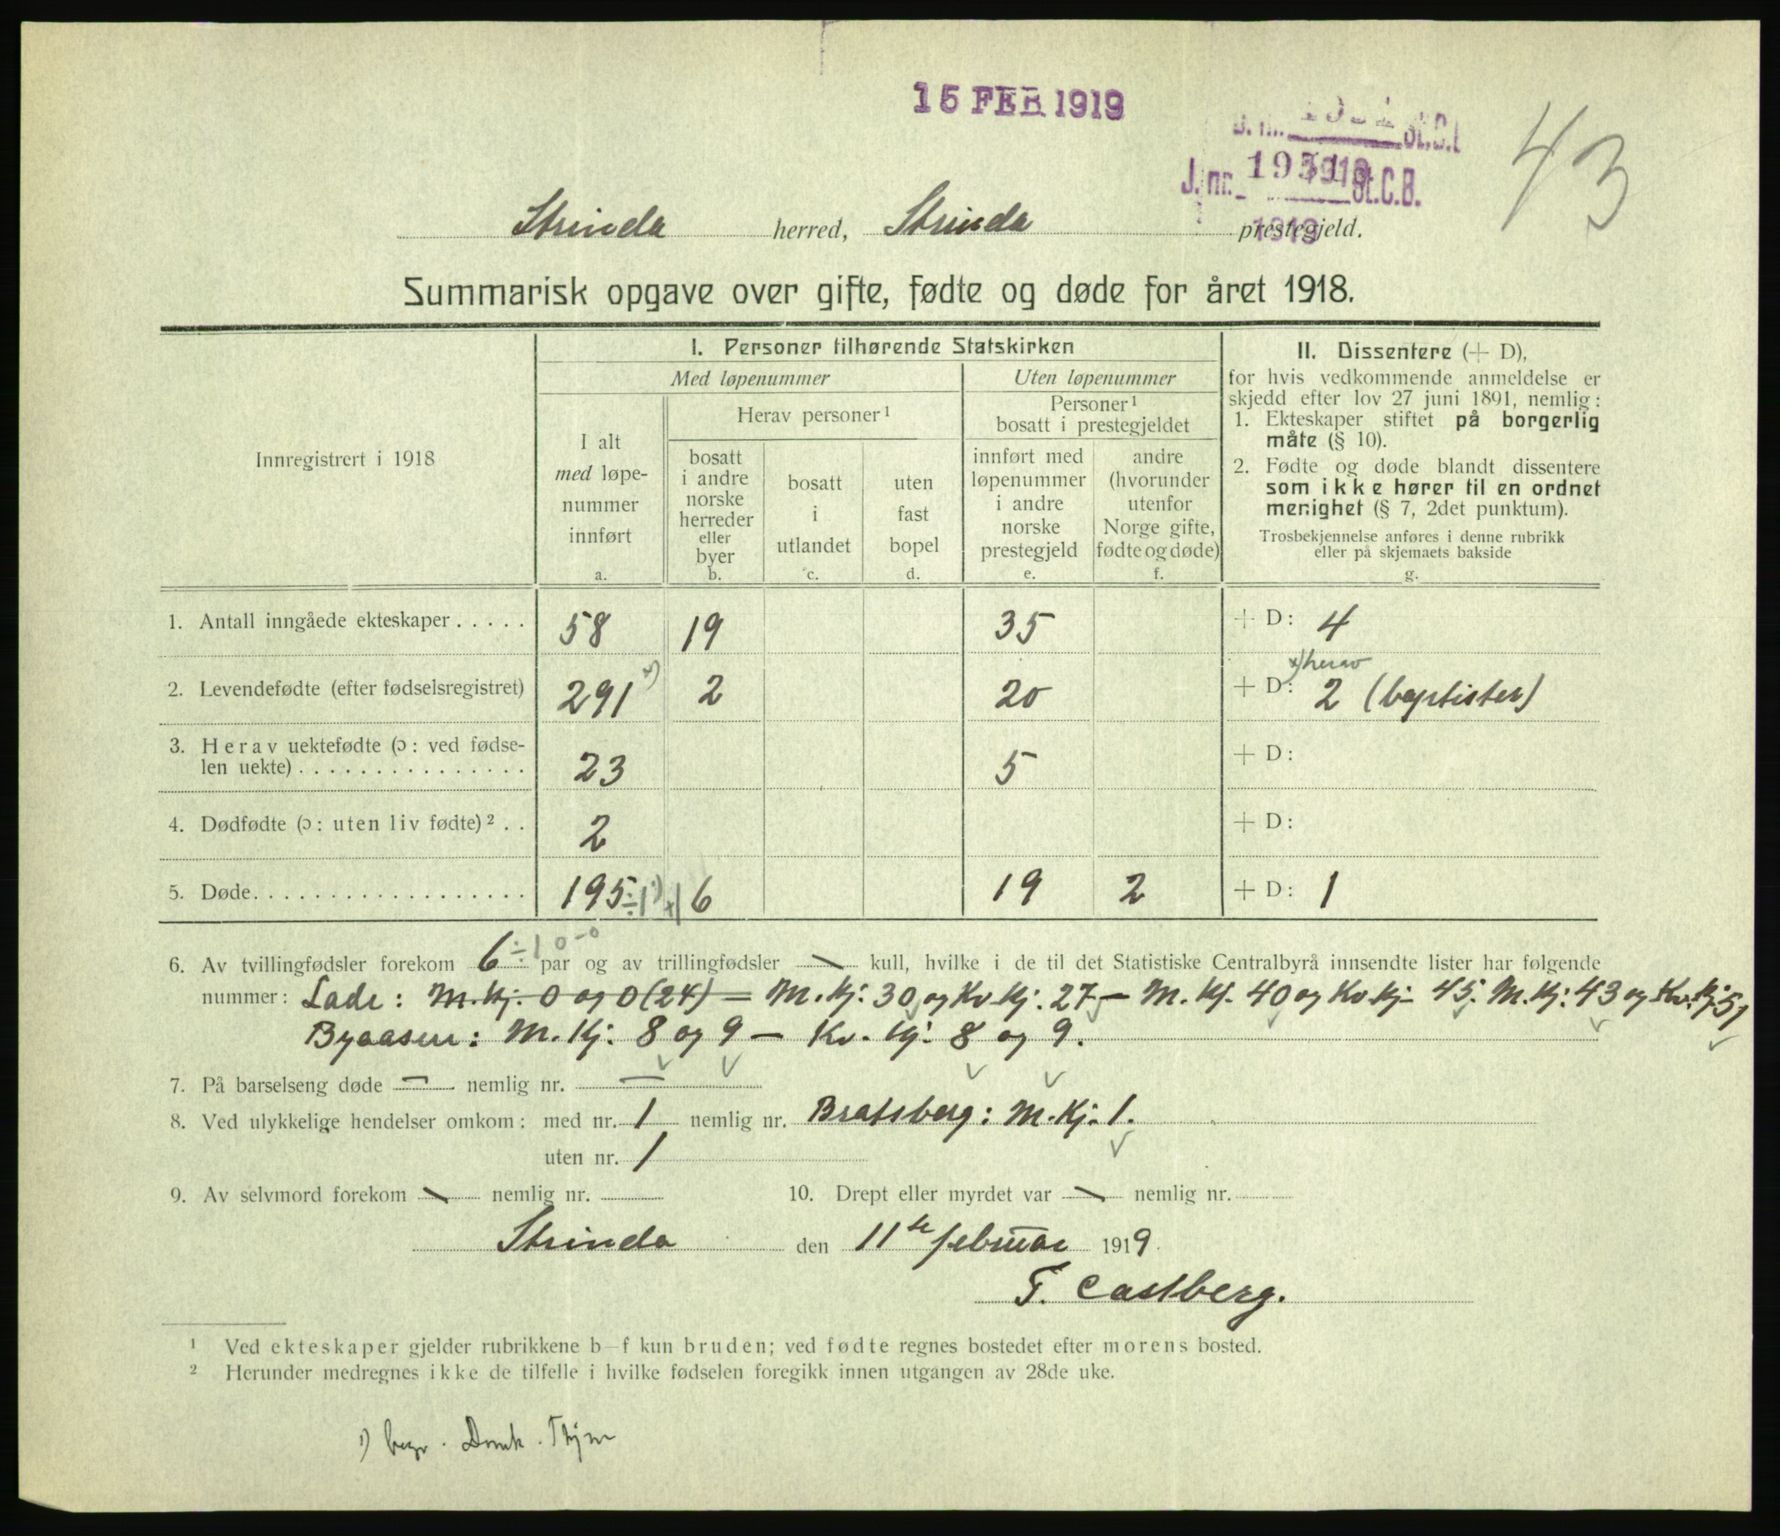 15 FEB 1919
43
J. nr. St.C.B.
1919
Strinda herred, Strinda prestegjeld.
Summarisk opgave over gifte, fødte og døde for året 1918.
Innregistrert i 1918
I. Personer tilhørende Statskirken
Med løpenummer
Uten løpenummer
I alt
med løpe-
nummer
innført
a.
Herav personer¹
bosatt
i andre
norske
herreder
eller
byer
b.
bosatt
i
utlandet
c.
uten
fast
bopel
d.
Personer¹
bosatt i prestegjeldet
innført med
løpenummer
i andre
norske
prestegjeld
e.
andre
(hvorunder
utenfor
Norge gifte,
fødte og døde)
f.
II. Dissentere (+ D),
for hvis vedkommende anmeldelse er
skjedd efter lov 27 juni 1891, nemlig:
1. Ekteskaper stiftet på borgerlig
måte (§ 10).
2. Fødte og døde blandt dissentere
som ikke hører til en ordnet
menighet (§ 7, 2det punktum).
Trosbekjennelse anføres i denne rubrikk
eller på skjemaets bakside
g.
1. Antall inngåede ekteskaper . . . . . 58 19 35 + D: 4
x) herav
2. Levendefødte (efter fødselsregistret) 291 x) 2 20 + D: 2 (baptister)
3. Herav uektefødte (ɔ: ved fødse-
len uekte) . . . . . . . . . . . . . . . 23 5 + D:
4. Dødfødte (ɔ: uten liv fødte)² . . 2 + D:
5. Døde. . . . . . . . . . . . . . . . . . 195 ÷1 ¹) +1 6 19 2 + D: 1
6. Av tvillingfødsler forekom 6 ÷1 0-0 par og av trillingfødsler — kull, hvilke i de til det Statistiske Centralbyrå innsendte lister har følgende
nummer: Lade: M.kj. 0 og 0 (24) — M.kj. 30 og Kv.kj. 27 — M.kj. 40 og Kv.kj. 45. M.kj. 43 og Kv.kj. 51
Byaasen: M.kj. 8 og 9 — Kv.kj. 8 og 9.
7. På barselseng døde — nemlig nr. —
8. Ved ulykkelige hendelser omkom: med nr. 1 nemlig nr. Bratsberg: M.kj. 1.
uten nr. 1
9. Av selvmord forekom — nemlig nr.
10. Drept eller myrdet var — nemlig nr.
Strinda den 11te februar 1919.
F. Castberg.
¹ Ved ekteskaper gjelder rubrikkene b—f kun bruden; ved fødte regnes bostedet efter morens bosted.
² Herunder medregnes ikke de tilfelle i hvilke fødselen foregikk innen utgangen av 28de uke.
¹) begr. Domk. Thjm